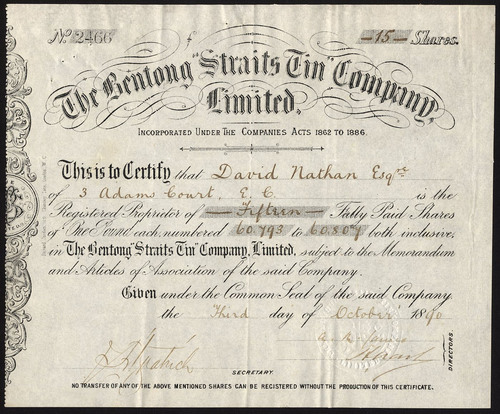 No. 2466
15 Shares.
The Bentong "Straits Tin" Company,
Limited.
INCORPORATED UNDER THE COMPANIES ACTS 1862 TO 1886.
This is to Certify that David Nathan Esqre
of 3 Adams Court, E.C. is the
Registered Proprietor of Fifteen Fully Paid Shares
of One Pound each, numbered 60,793 to 60,807 both inclusive,
in The Bentong "Straits Tin" Company, Limited, subject to the Memorandum
and Articles of Association of the said Company.
Given under the Common Seal of the said Company
the Third day of October 1890
DIRECTORS.
SECRETARY.
NO TRANSFER OF ANY OF THE ABOVE MENTIONED SHARES CAN BE REGISTERED WITHOUT THE PRODUCTION OF THIS CERTIFICATE.